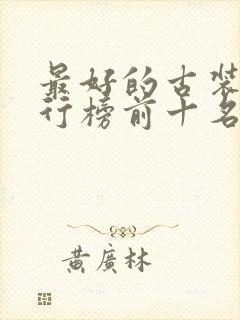 最好的古装
行榜前十名
黄廣林